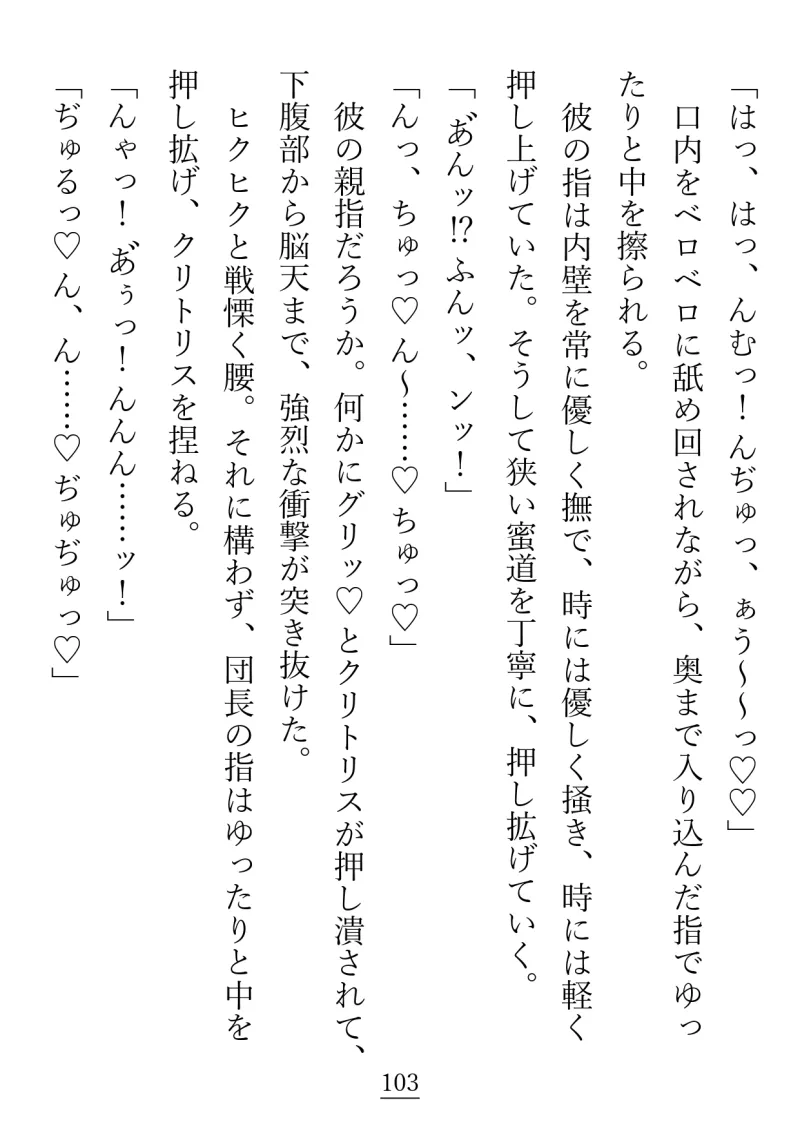 「はっ、はっ、んむっ！んぢゅっ、ぁう〜〜っ♡♡」
　口内をベロベロに舐め回されながら、奥まで入り込んだ指でゆっ
たりと中を擦られる。
　彼の指は内壁を常に優しく撫で、時には優しく掻き、時には軽く
押し上げていた。そうして狭い蜜道を丁寧に、押し拡げていく。
「あ゙んッ⁉ふんッ、ンッ！」
「んっ、ちゅっ♡ん〜……♡ちゅっ♡」
　彼の親指だろうか。何かにグリッ♡とクリトリスが押し潰されて、
下腹部から脳天まで、強烈な衝撃が突き抜けた。
　ヒクヒクと戦慄く腰。それに構わず、団長の指はゆったりと中を
押し拡げ、クリトリスを捏ねる。
「んゃっ！あ゙ぅっ！んんん……ッ！」
「ぢゅるっ♡ん、ん……♡ぢゅぢゅっ♡」
103